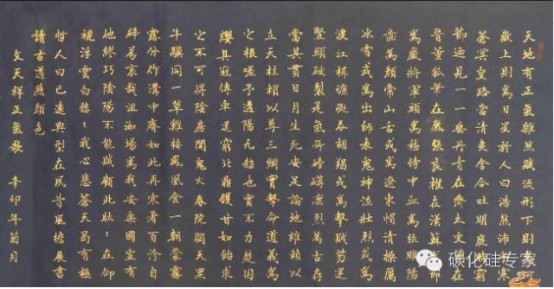 天地有正氣雜然賦流形下則為河
嶽上則為日星於人曰浩然沛乎塞
蒼冥皇路當清夷含和吐明庭時窮
節迺見一一垂丹青在齊太史簡在
晉董狐筆在秦張良椎在漢蘇武節
為嚴將軍頭為嵇侍中血為張睢陽
齒為顏常山舌或為遼東帽清操厲
冰雪或為出師表鬼神泣壯烈或為
渡江楫慷慨吞胡羯或為擊賊笏逆
豎頭破裂是氣所磅礴凜烈萬古存
當其貫日月生死安足論地維賴以
立天柱賴以尊三綱實繫命道義為
之根嗟予遘陽九隸也實不力楚囚
纓其冠傳車送窮北鼎鑊甘如飴求
之不可得陰房闃鬼火春院閟天黑
牛驥同一皂雞棲鳳凰食一朝蒙霧
露分作溝中瘠如此再寒暑百沴自
辟易哀哉沮洳場為我安樂國豈有
他繆巧陰陽不能賊顧此耿耿在仰
視浮雲白悠悠我心悲蒼天曷有極
哲人日已遠典型在夙昔風檐展書
讀古道照顏色
文天祥正氣歌 辛卯年菊月
碳化硅专家